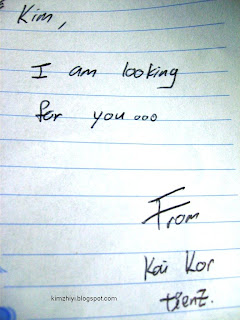 Kim,
I am looking
for you...
From
Kai Kor
kimzhiyi.blogspot.com